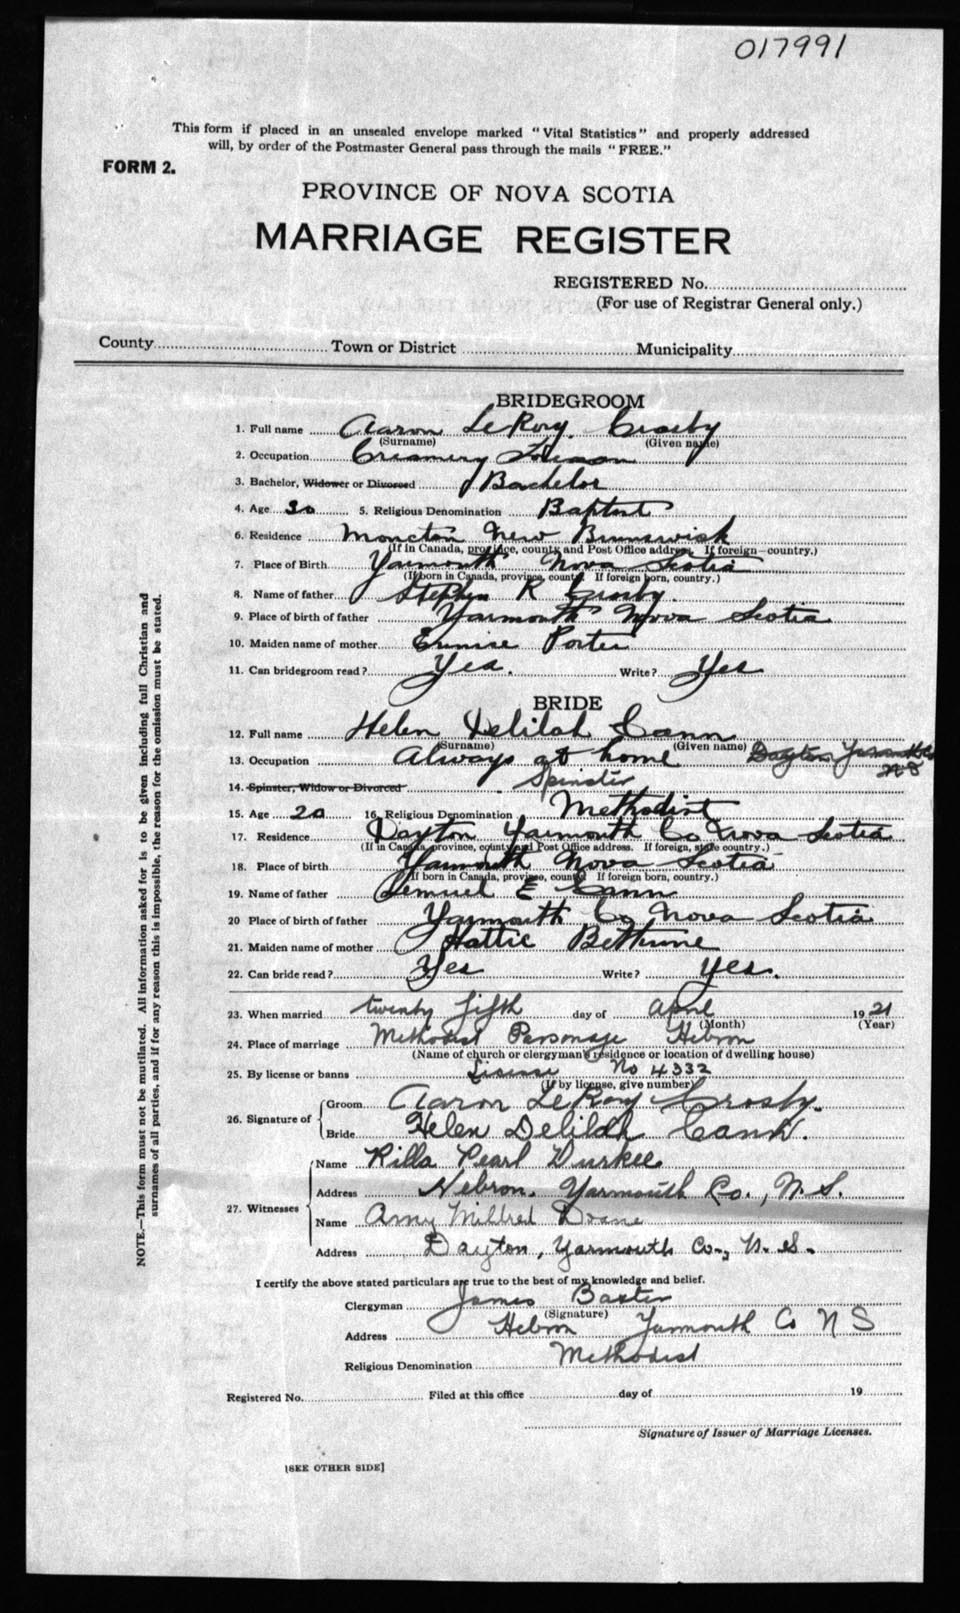 017991
This form if placed in an unsealed envelope marked "Vital Statistics" and properly addressed
will, by order of the Postmaster General pass through the mails "FREE."
FORM 2.
PROVINCE OF NOVA SCOTIA
MARRIAGE REGISTER
REGISTERED No.
(For use of Registrar General only.)
County Town or District Municipality
BRIDEGROOM
1. Full name Aaron LeRoy Crosby
(Surname) (Given name)
2. Occupation Creamery
3. Bachelor, Widower or Divorced Bachelor
4. Age 5. Religious Denomination Baptist
6. Residence Moncton New Brunswick
(If in Canada, province, county and Post Office address. If foreign—country.)
7. Place of Birth Yarmouth Nova Scotia
(If born in Canada, province, county If foreign born, country.)
8. Name of father Stephen R Crosby.
9. Place of birth of father Yarmouth Nova Scotia
10. Maiden name of mother Eunice Porter
11. Can bridegroom read? Yes. Write? Yes
BRIDE
12. Full name Helen Delilah Cann
(Surname) (Given name)
13. Occupation Always at home Dayton Yarmouth Co
NS
14. Spinster, Widow or Divorced Spinster
15. Age 20 16. Religious Denomination Methodist
17. Residence Dayton Yarmouth Co Nova Scotia
(If in Canada, province, county and Post Office address. If foreign, state country.)
18. Place of birth Yarmouth Nova Scotia
(If born in Canada, province, county If foreign born, country.)
19. Name of father Lemuel E Cann
20 Place of birth of father Yarmouth Co Nova Scotia
21. Maiden name of mother Hattie Bethune
22. Can bride read? Yes Write? yes.
23. When married twenty fifth day of April 1921
(Month) (Year)
24. Place of marriage Methodist Parsonage Hebron
(Name of church or clergyman's residence or location of dwelling house)
25. By license or banns License No 4332
(If by license, give number)
26. Signature of Groom Aaron LeRoy Crosby.
Bride Helen Delilah Cann.
27. Witnesses Name Rilla Pearl Durkee
Address Hebron, Yarmouth Co., N.S.
Name Amy Mildred Doane
Address Dayton, Yarmouth Co., N.S.
I certify the above stated particulars are true to the best of my knowledge and belief.
Clergyman James Baxter
(Signature)
Address Hebron Yarmouth Co NS
Religious Denomination Methodist
Registered No. Filed at this office day of 19
Signature of Issuer of Marriage Licenses.
[SEE OTHER SIDE]
NOTE.—This form must not be mutilated. All information asked for is to be given including full Christian and
surnames of all parties, and if for any reason this is impossible, the reason for the omission must be stated.